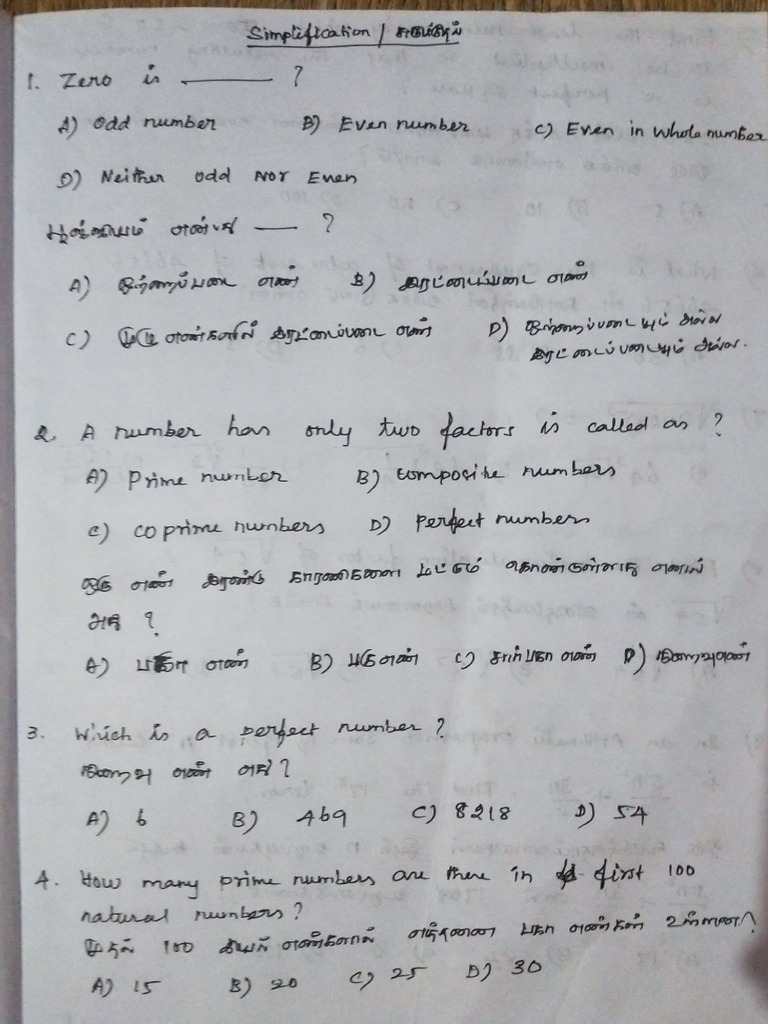 Simplification / சுருக்குதல்
1. Zero is ——— ?
A) Odd number B) Even number C) Even in whole number
D) Neither odd Nor Even
பூஜ்ஜியம் என்பது —— ?
A) ஒற்றைப்படை எண் B) இரட்டைப்படை எண்
C) முழு எண்களில் இரட்டைப்படை எண் D) ஒற்றைப்படையும் அல்ல
இரட்டைப்படையும் அல்ல.
2. A number has only two factors is called as ?
A) Prime number B) composite numbers
C) co prime numbers D) Perfect numbers
ஒரு எண் இரண்டு காரணிகளை மட்டும் கொண்டுள்ளது எனில்
அது ?
A) பகா எண் B) பகு எண் C) சார்பகா எண் D) நிறைவு எண்
3. Which is a perfect number ?
நிறைவு எண் எது ?
A) 6 B) 469 C) 8218 D) 54
4. How many prime numbers are there in first 100
natural numbers ?
முதல் 100 இயல் எண்களில் எத்தனை பகா எண்கள் உள்ளன ?
A) 15 B) 20 C) 25 D) 30